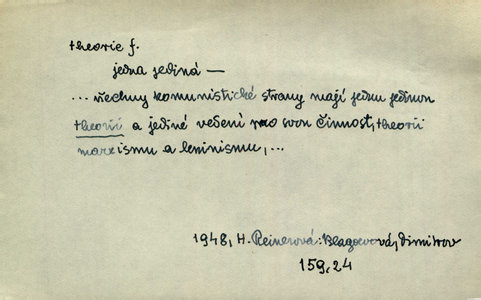 theorie f.
jedna jediná —
... všechny komunistické strany mají jednu jedinou
theorii a jediné vedení pro svou činnost, theorii
marxismu a leninismu, ...
1948, H. Reinerová: Blagoevová, Dimitrov
159, 24